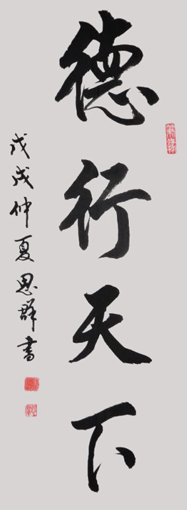 德行天下
戊戌仲夏思群书